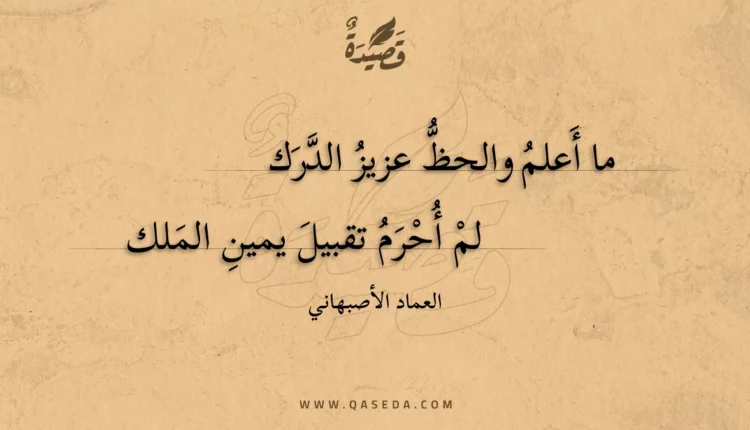 قَصِيْدَةٌ
ما أَعلمُ والحظُّ عزيزُ الدَّرَك
لمْ أُحْرَمُ تقبيلَ يمينِ المَلك
العماد الأصبهاني
WWW.QASEDA.COM